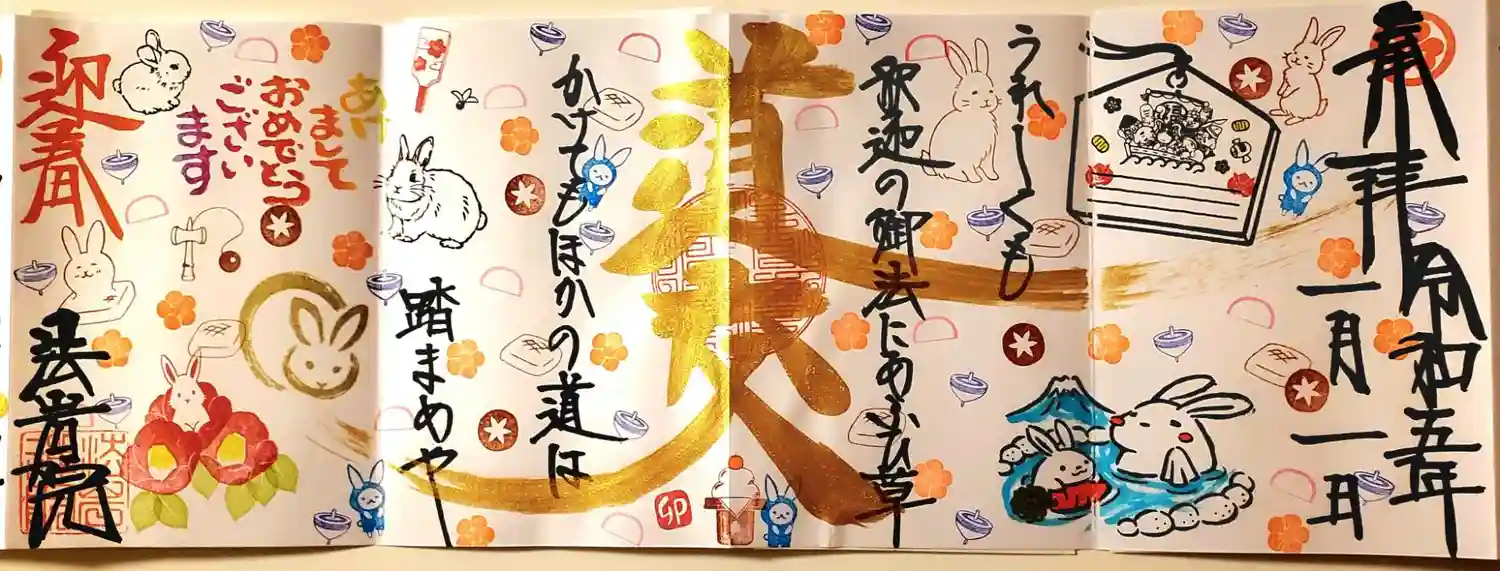 奉拝
令和五年
一月一日
うれしくも
釈迦の御法にあふひ草
かけてもほかの道は
踏まめや
あけ
まして
おめでとう
ござい
ます
迎春